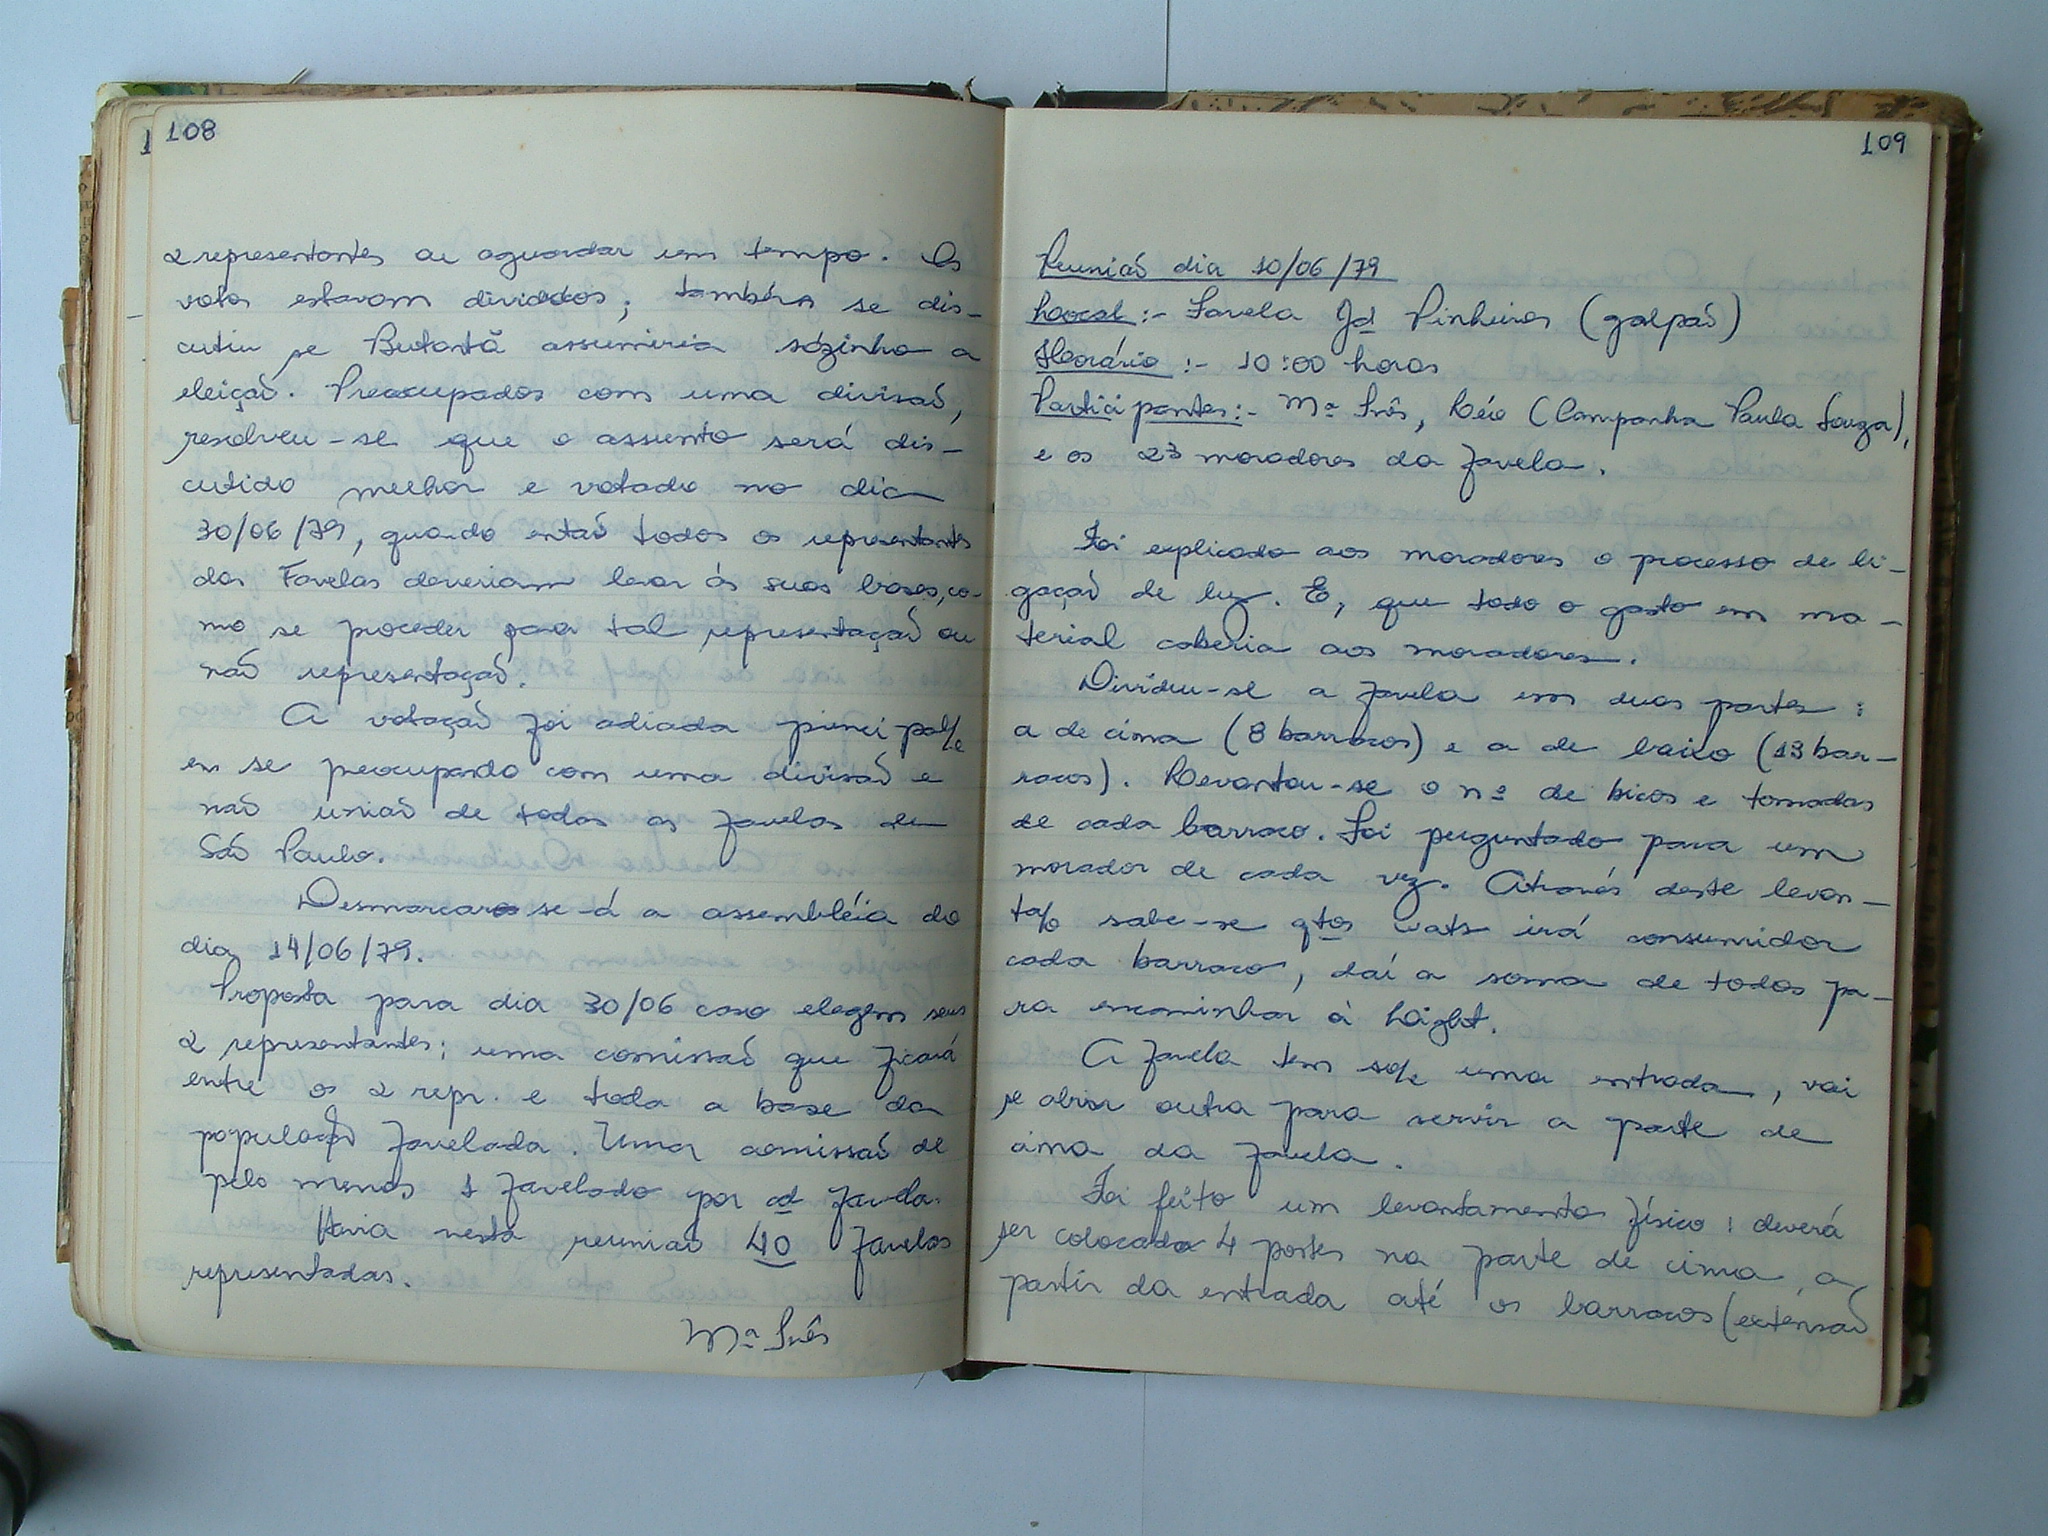 108
2 representantes ou aguardar um tempo. Os
votos estavam divididos; também se dis-
cutiu se Butantã assumiria sózinho a
eleição. Preocupados com uma divisão,
resolveu-se que o assunto será dis-
cutido melhor e votado no dia
30/06/79, quando então todos os representantes
das Favelas deveriam levar ás suas bases, co-
mo se proceder para tal representação ou
não representação.
A votação foi adiada principal/e
em se preocupando com uma divisão e
não união de todas as favelas de
São Paulo.
Desmarcar se-á a assembléia do
dia 14/06/79.
Proposta para dia 30/06 caso elegem seus
2 representantes; uma comissão que ficará
entre os 2 repr. e toda a base da
população favelada. Uma comissão de
pelo menos 1 favelado por cd favela.
Havia nesta reunião 40 favelas
representadas.
Mª Inês
109
Reunião dia 10/06/79
Local:- Favela Jd Pinheiros (galpão)
Horário:- 10:00 horas
Participantes:- Mª Inês, Léo (Campanha Paula Souza),
e os 23 moradores da favela.
Foi explicado aos moradores o processo de li-
gação de luz. E, que todo o gasto em ma-
terial caberia aos moradores.
Dividiu-se a favela em duas partes:
a de cima (8 barracos) e a de baixo (13 bar-
racos). Levantou-se o nº de bicos e tomadas
de cada barraco. Foi perguntado para um
morador de cada vez. Através deste levan-
ta/o sabe-se qtos wats irá consumidor
cada barraco, daí a soma de todos pa-
ra encaminhar à Light.
A favela tem so/e uma entrada, vai
se abrir outra para servir a parte de
cima da favela.
Foi feito um levantamento físico: deverá
ser colocada 4 postes na parte de cima, a
partir da entrada até os barracos (extensão